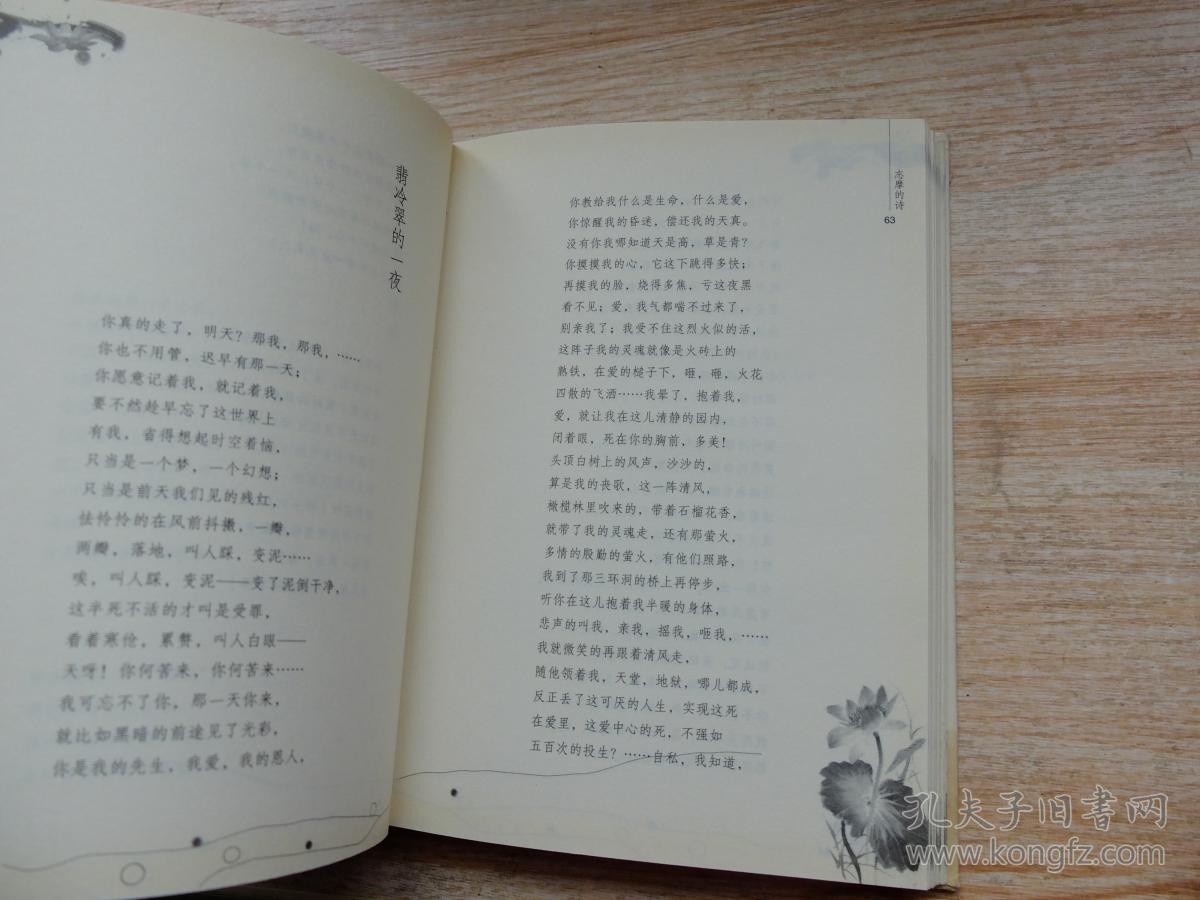 翡冷翠的一夜
你真的走了，明天？那我，那我，……
你也不用管，迟早有那一天；
你愿意记着我，就记着我，
要不然趁早忘了这世界上
有我，省得想起时空着恼，
只当是一个梦，一个幻想；
只当是前天我们见的残红，
怯怜怜的在风前抖擞，一瓣，
两瓣，落地，叫人踩，变泥……
唉，叫人踩，变泥——变了泥倒干净，
这半死不活的才叫是受罪，
看着寒伧，累赘，叫人白眼——
天呀！你何苦来，你何苦来……
我可忘不了你，那一天你来，
就比如黑暗的前途见了光彩，
你是我的先生，我爱，我的恩人，
志摩的诗
63
你教给我什么是生命，什么是爱，
你惊醒我的昏迷，偿还我的天真。
没有你我哪知道天是高，草是青？
你摸摸我的心，它这下跳得多快；
再摸我的脸，烧得多焦，亏这夜黑
看不见；爱，我气都喘不过来了，
别亲我了；我受不住这烈火似的活，
这阵子我的灵魂就像是火砖上的
熟铁，在爱的槌子下，砸，砸，火花
四散的飞洒……我晕了，抱着我，
爱，就让我在这儿清静的园内，
闭着眼，死在你的胸前，多美！
头顶白树上的风声，沙沙的，
算是我的丧歌，这一阵清风，
橄榄林里吹来的，带着石榴花香，
就带了我的灵魂走，还有那萤火，
多情的殷勤的萤火，有他们照路，
我到了那三环洞的桥上再停步，
听你在这儿抱着我半暖的身体，
悲声的叫我，亲我，摇我，咂我，……
我就微笑的再跟着清风走，
随他领着我，天堂，地狱，哪儿都成，
反正丢了这可厌的人生，实现这死
在爱里，这爱中心的死，不强如
五百次的投生？……自私，我知道，
孔夫子旧书网
www.kongfz.com